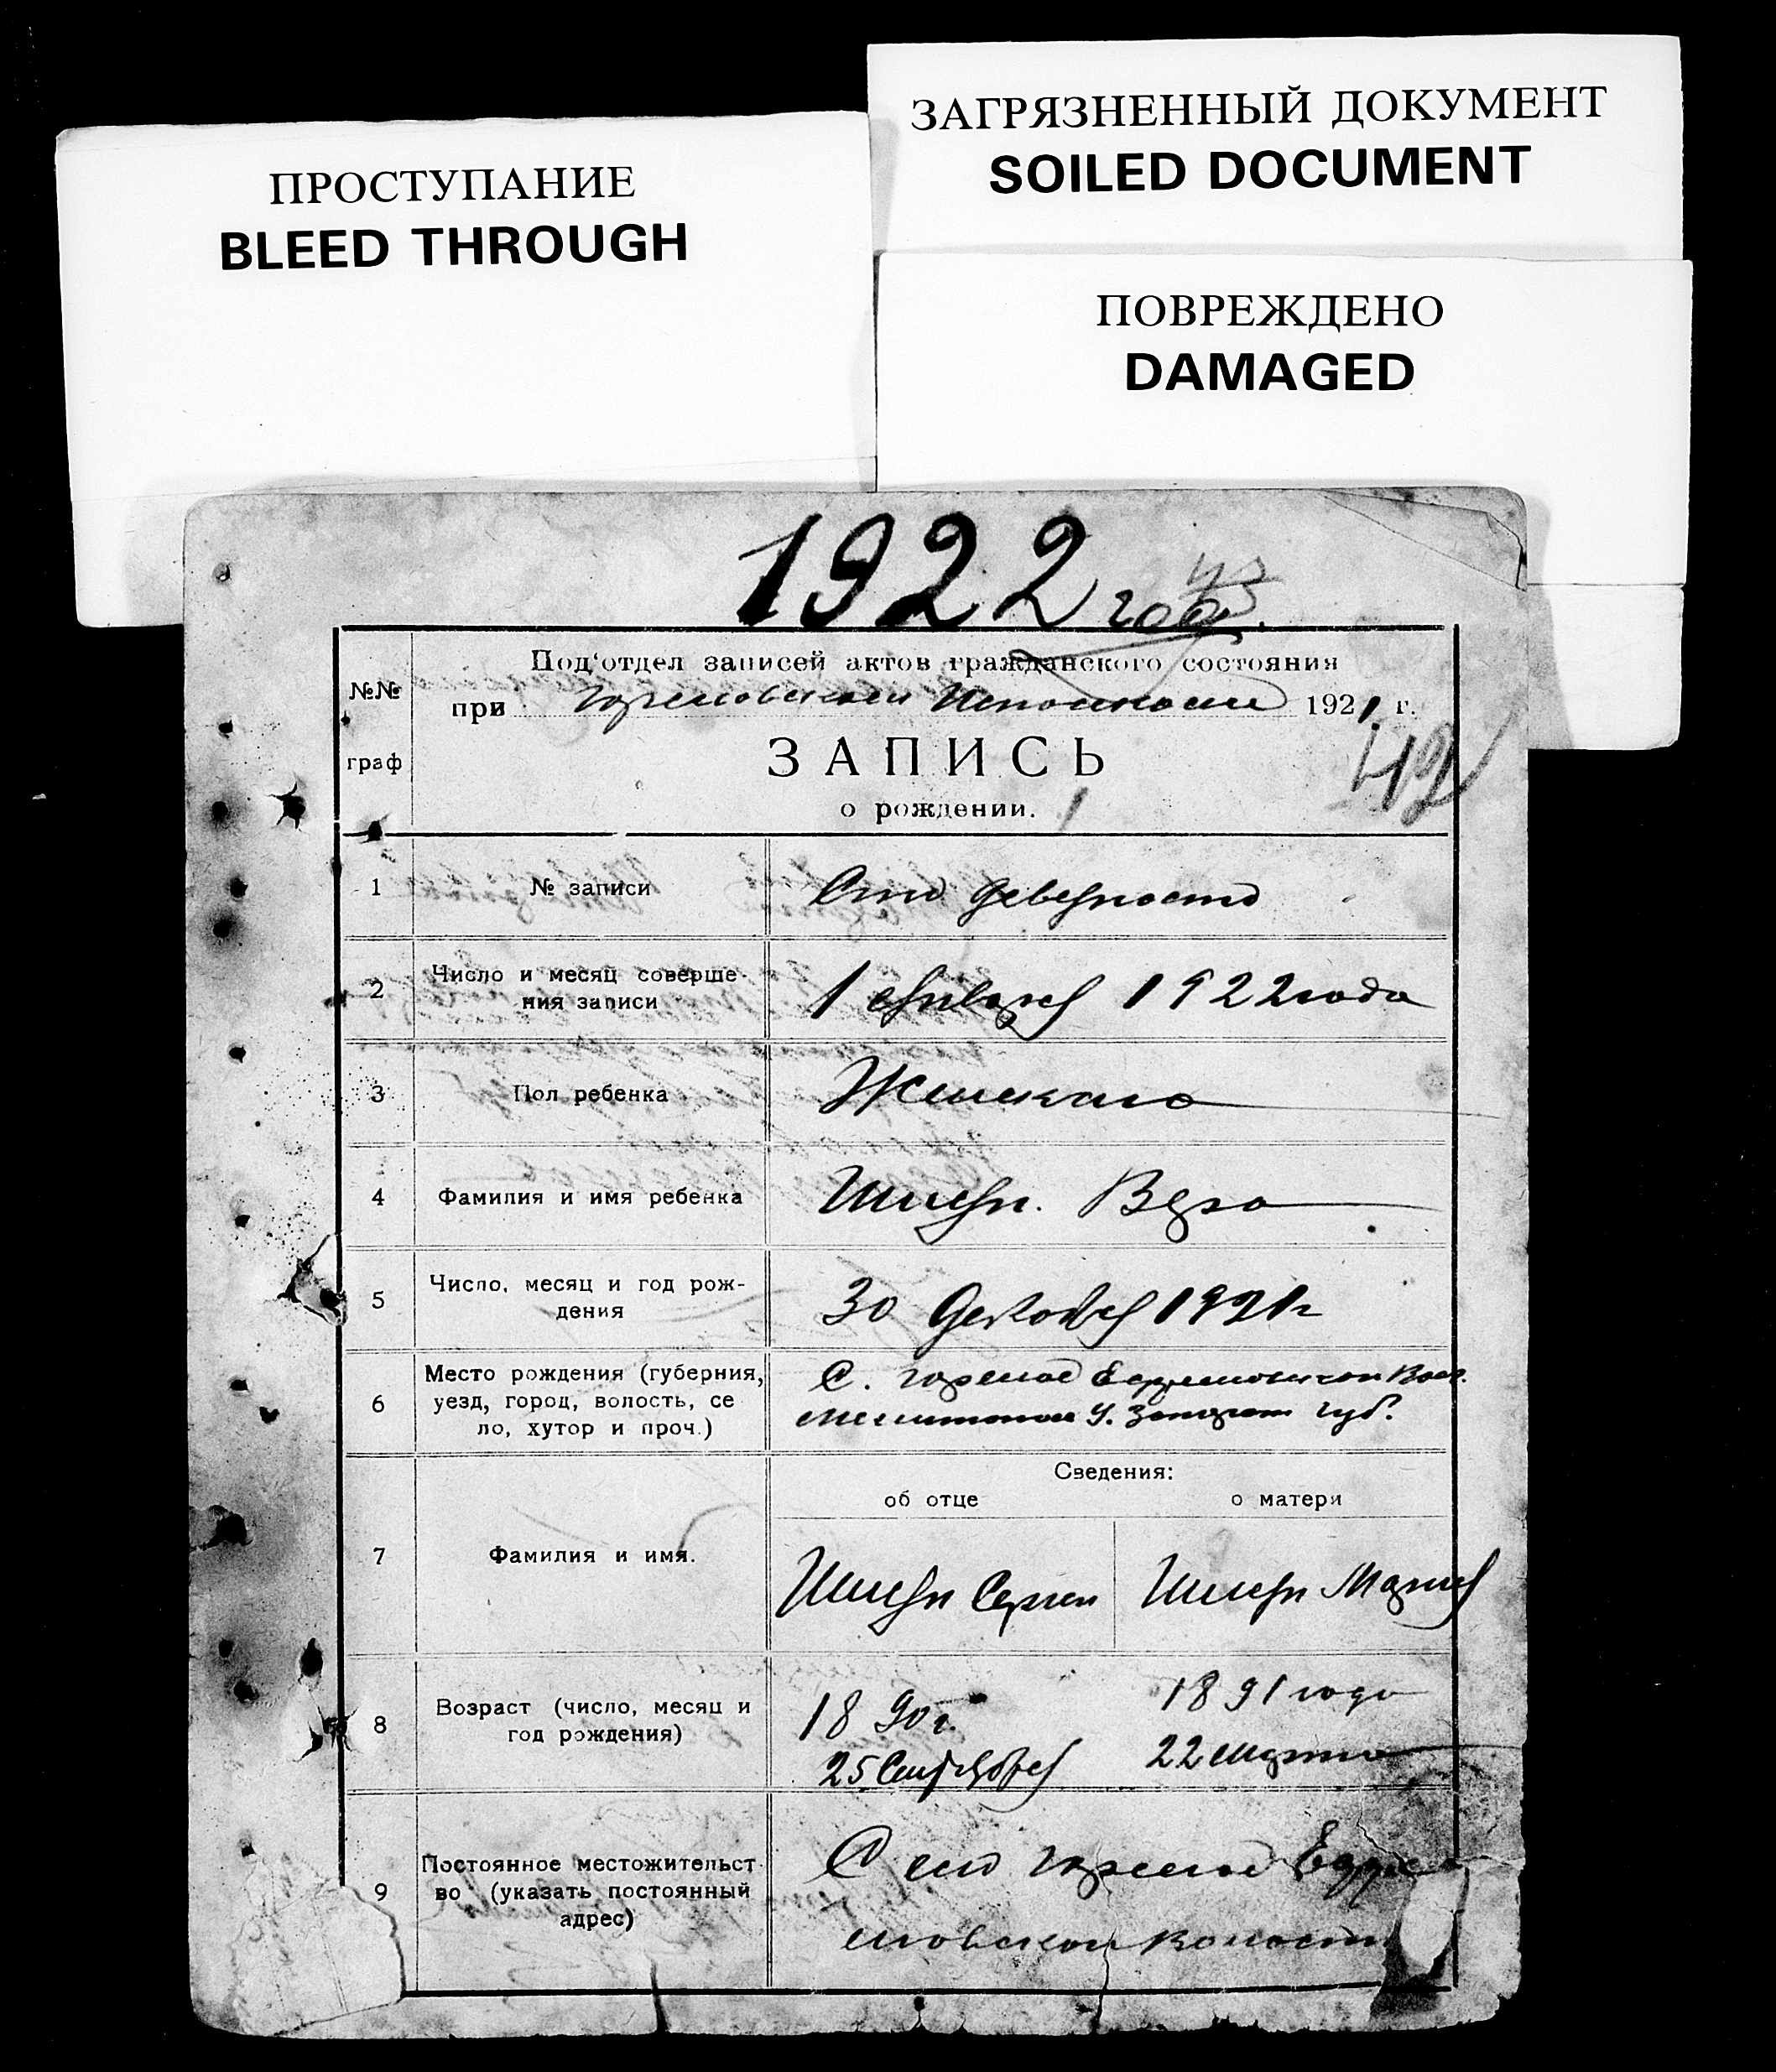 ЗАГРЯЗНЕННЫЙ ДОКУМЕНТ
SOILED DOCUMENT
ПРОСТУПАНИЕ
BLEED THROUGH
ПОВРЕЖДЕНО
DAMAGED
1922 год.
43
Под‘отдел записей актов гражданского состояния
№№
при Исполкоме 1921 г.
граф
ЗАПИСЬ
42
о рождении.
1
№ записи
Сто девяносто
2
Число и месяц соверше-
ния записи
1 января 1922 года
3
Пол ребенка
Женского
4
Фамилия и имя ребенка
Вера
5
Число, месяц и год рож-
дения
30 Декабря 1921 г
6
Место рождения (губерния,
уезд, город, волость, се
ло, хутор и проч.)
С. Ефремовской Вол.
У. губ.
Сведения:
об отце
о матери
7
Фамилия и имя.
Сергей
Мария
8
Возраст (число, месяц и
год рождения)
1890 г.
25 Сентября
1891 года
22 марта
9
Постоянное местожительст-
во (указать постоянный
адрес)
Село Ефре
мовской волости